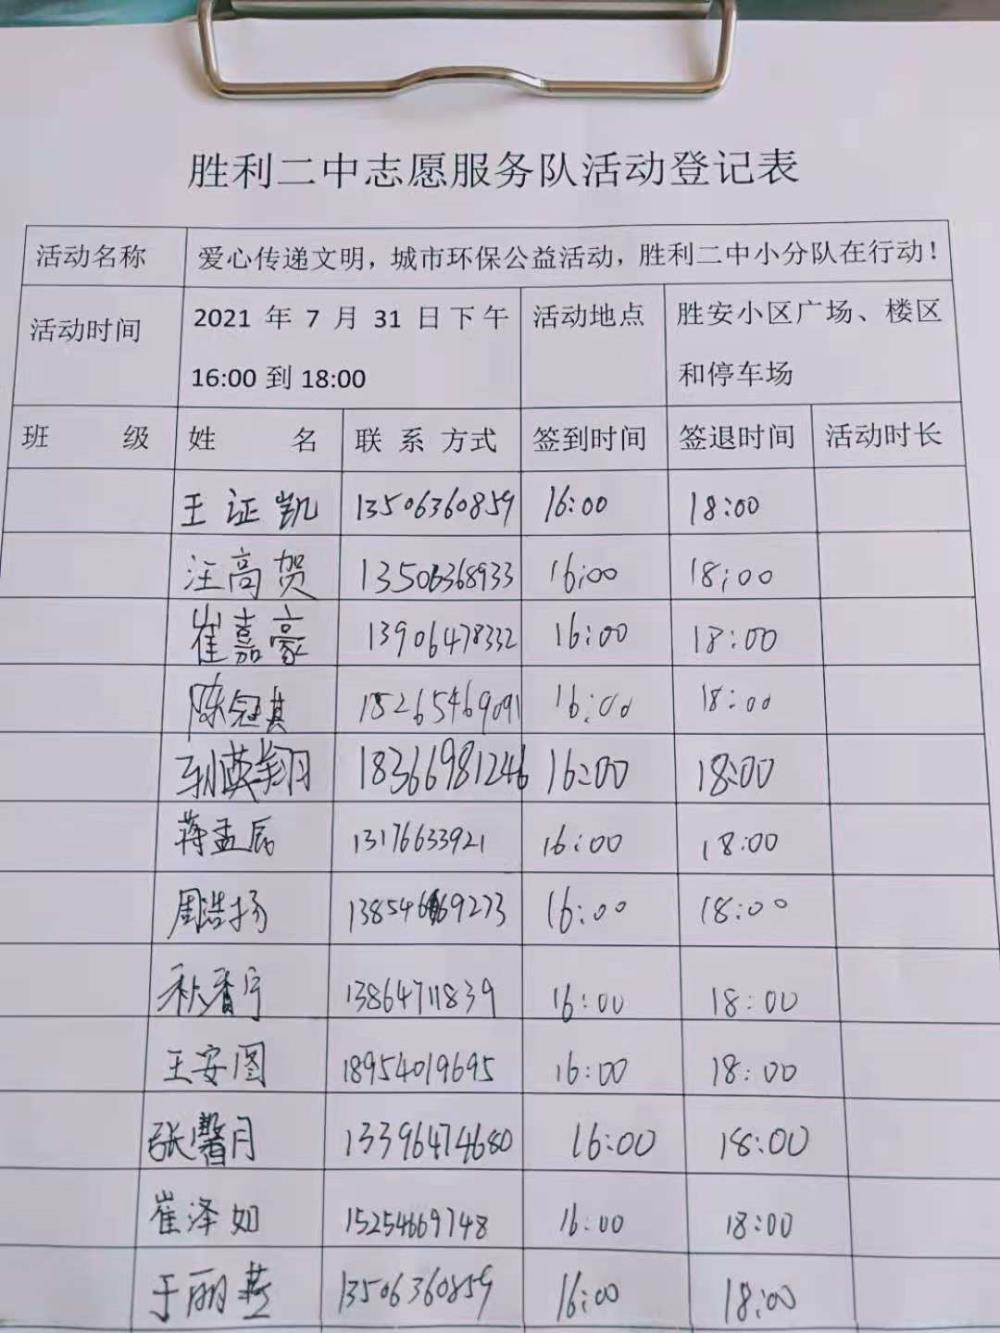 胜利二中志愿服务队活动登记表
活动名称 爱心传递文明，城市环保公益活动，胜利二中小分队在行动！
活动时间 2021 年 7 月 31 日下午 16:00 到 18:00 活动地点 胜安小区广场、楼区和停车场
班 级 姓 名 联 系 方式 签到时间 签退时间 活动时长
王证凯 13506360859 16:00 18:00
汪高贺 13506368933 16:00 18:00
崔嘉豪 13906478332 16:00 18:00
陈冠其 15265469091 16:00 18:00
孙英翔 18366981246 16:00 18:00
蒋孟辰 13176633921 16:00 18:00
周浩扬 16:00 18:00
秋香宁 13864711839 16:00 18:00
王安图 18954019695 16:00 18:00
张馨月 13396474680 16:00 18:00
崔泽如 15254669748 16:00 18:00
于丽燕 13506360859 16:00 18:00